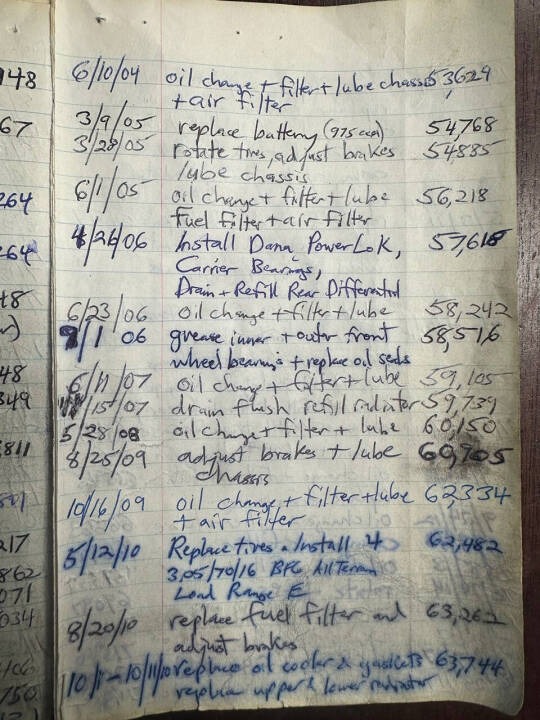 6/10/04 oil change + filter + lube chassis 53,629
+ air filter
3/9/05 replace battery (975 cca) 54,768
3/28/05 rotate tires, adjust brakes 54,885
lube chassis
6/1/05 oil change + filter + lube 56,218
fuel filter + air filter
4/26/06 Install Dana PowerLoK, 57,615
Carrier Bearings,
Drain + Refill Rear Differential
6/23/06 oil change + filter + lube 58,242
9/1 06 grease inner + outer front 58,516
wheel bearings + replace oil seals
6/11/07 oil change + filter + lube 59,105
/15/07 drain flush refill radiator 59,739
5/28/08 oil change + filter + lube 60,150
8/25/09 adjust brakes + lube
chassis
10/16/09 oil change + filter + lube 62,334
+ air filter
5/12/10 Replace tires Install 4 62,482
3,05/70/16 BFG All Terrain
Load Range E
8/20/10 replace fuel filter and 63,262
adjust brakes
10/1 - 10/11/10 replace oil cooler & gaskets 63,744
replace upper & lower radiator
948
67
264
264
48
349
811
217
862
071
034